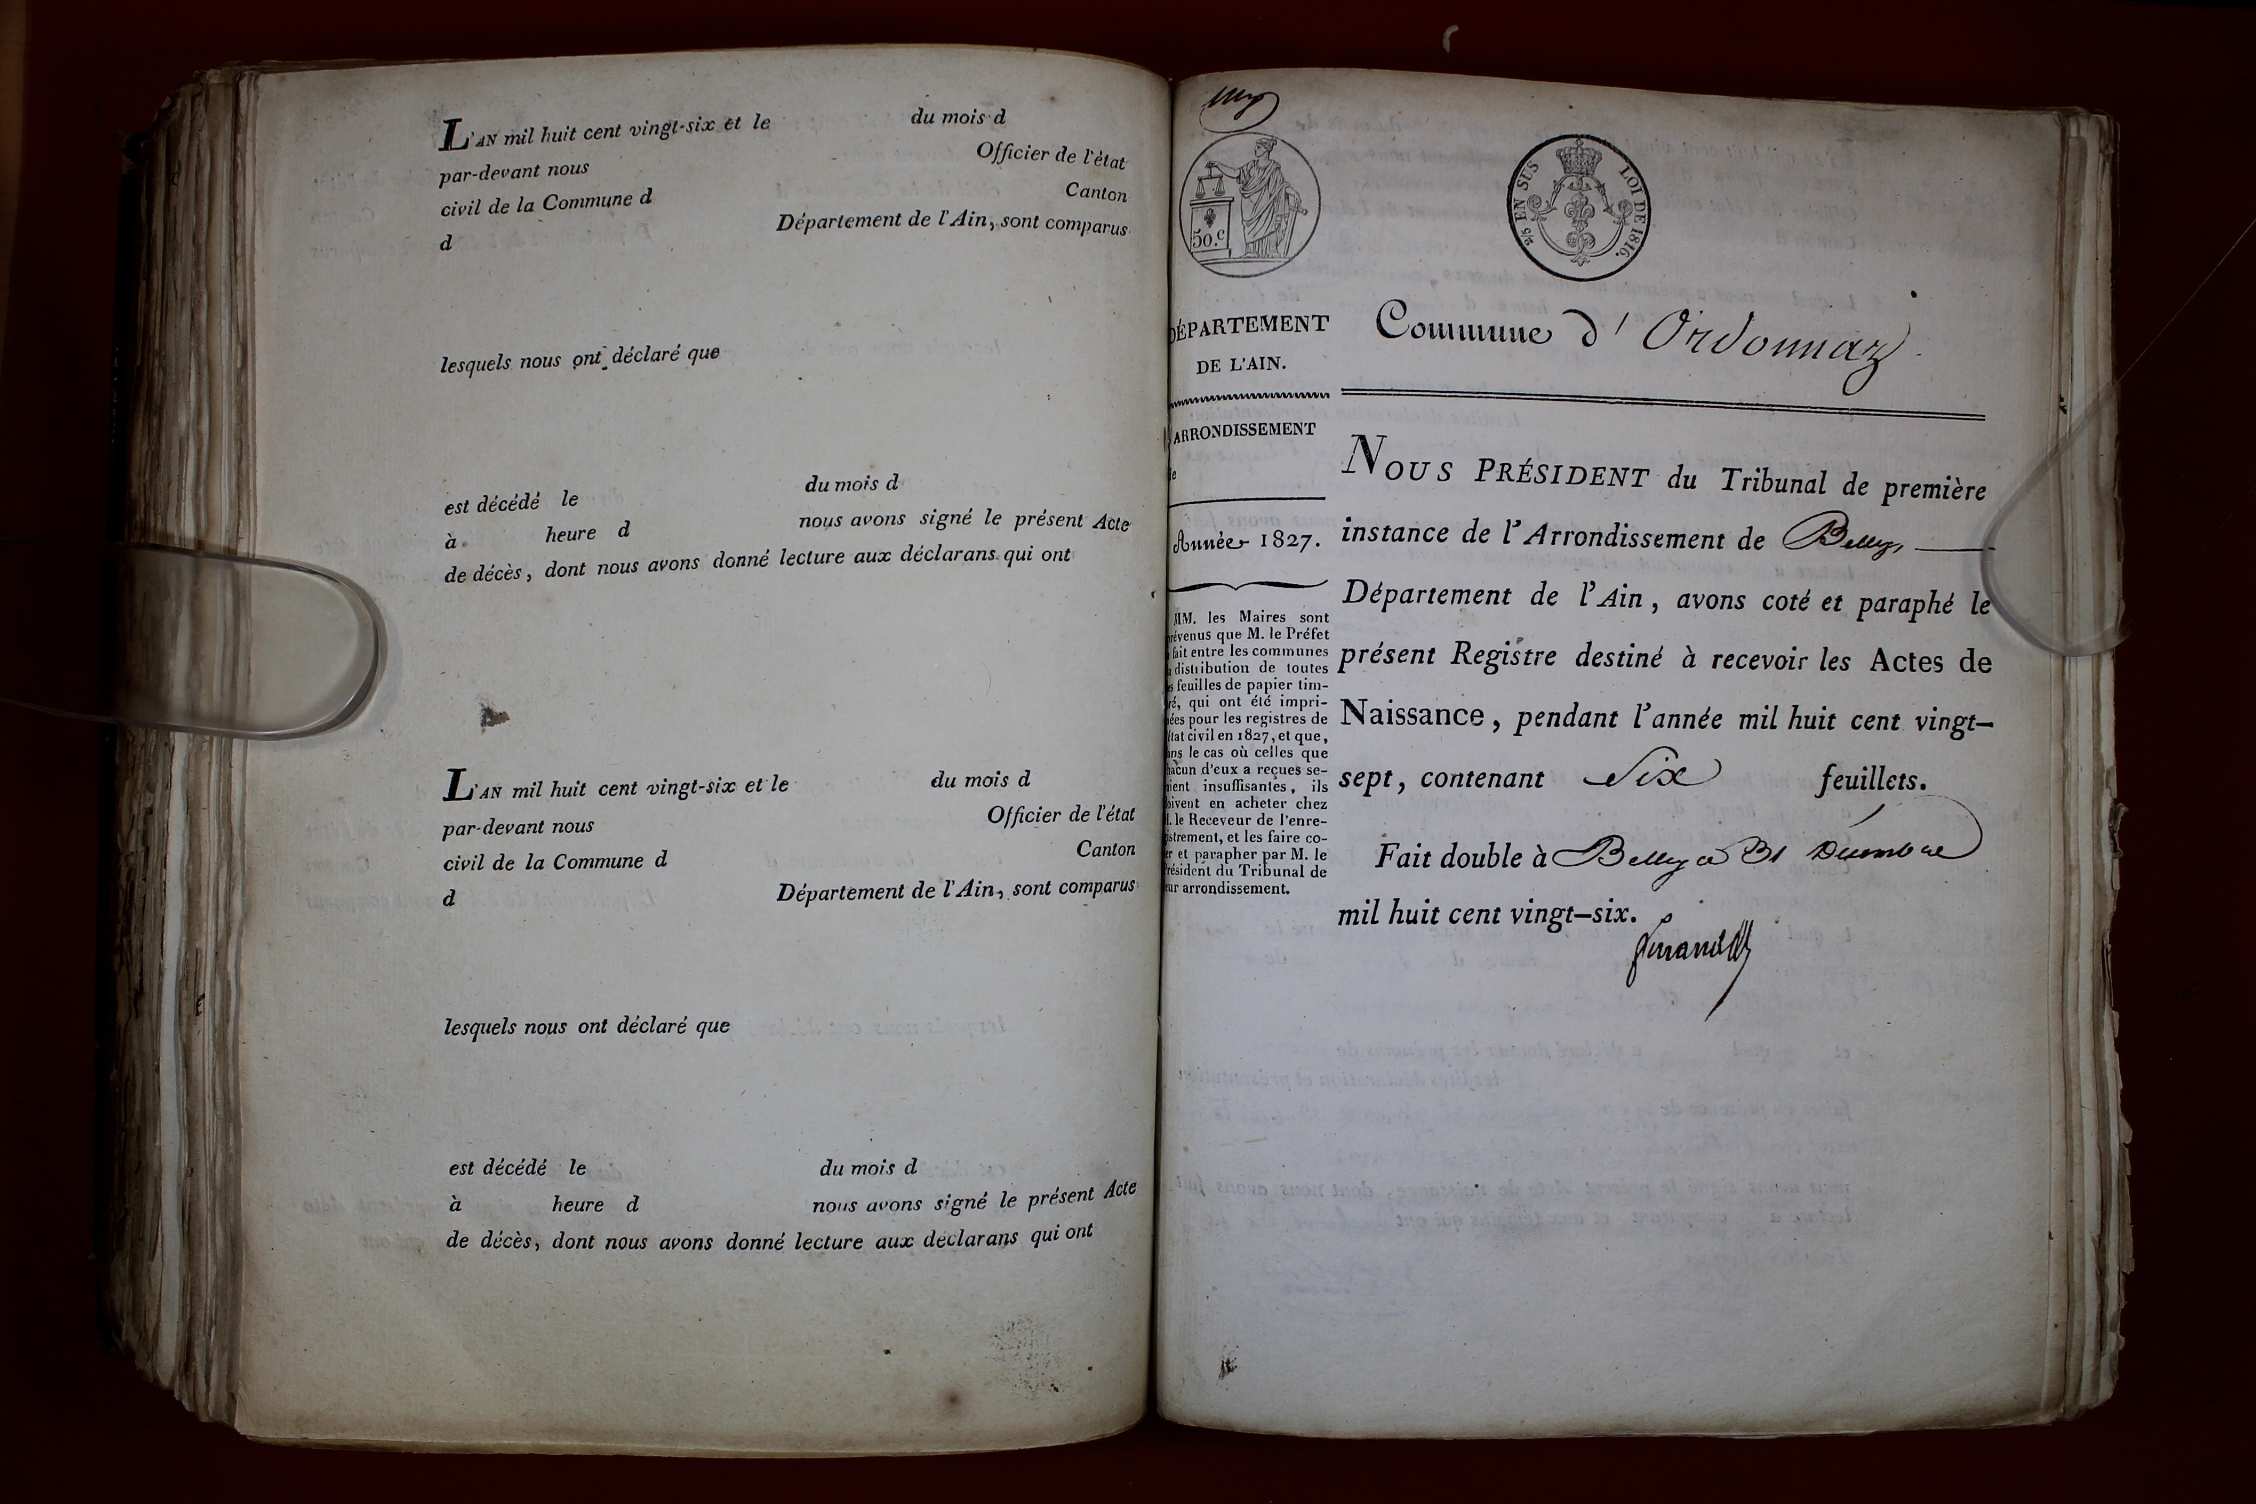 L'AN mil huit cent vingt-six et le du mois d
par-devant nous Officier de l'état
civil de la Commune d Canton
d Département de l'Ain, sont comparus
lesquels nous ont déclaré que
est décédé le du mois d
à heure d nous avons signé le présent Acte
de décès, dont nous avons donné lecture aux déclarans qui ont
L'AN mil huit cent vingt-six et le du mois d
par-devant nous Officier de l'état
civil de la Commune d Canton
d Département de l'Ain, sont comparus
lesquels nous ont déclaré que
est décédé le du mois d
à heure d nous avons signé le présent Acte
de décès, dont nous avons donné lecture aux déclarans qui ont
50.c
2/5 EN SUS LOI DE 1816.
DÉPARTEMENT
DE L'AIN.
ARRONDISSEMENT
de
Année 1827.
MM. les Maires sont
prévenus que M. le Préfet
a fait entre les communes
la distribution de toutes
les feuilles de papier tim-
bré, qui ont été impri-
mées pour les registres de
l'état civil en 1827, et que,
dans le cas où celles que
chacun d'eux a reçues se-
roient insuffisantes, ils
doivent en acheter chez
M. le Receveur de l'enre-
gistrement, et les faire co-
ter et parapher par M. le
Président du Tribunal de
leur arrondissement.
Commune d'Ordonnaz
NOUS PRÉSIDENT du Tribunal de première
instance de l'Arrondissement de Belley
Département de l'Ain, avons coté et paraphé le
présent Registre destiné à recevoir les Actes de
Naissance, pendant l'année mil huit cent vingt-
sept, contenant Six feuillets.
Fait double à Belley ce 31 Décembre
mil huit cent vingt-six.